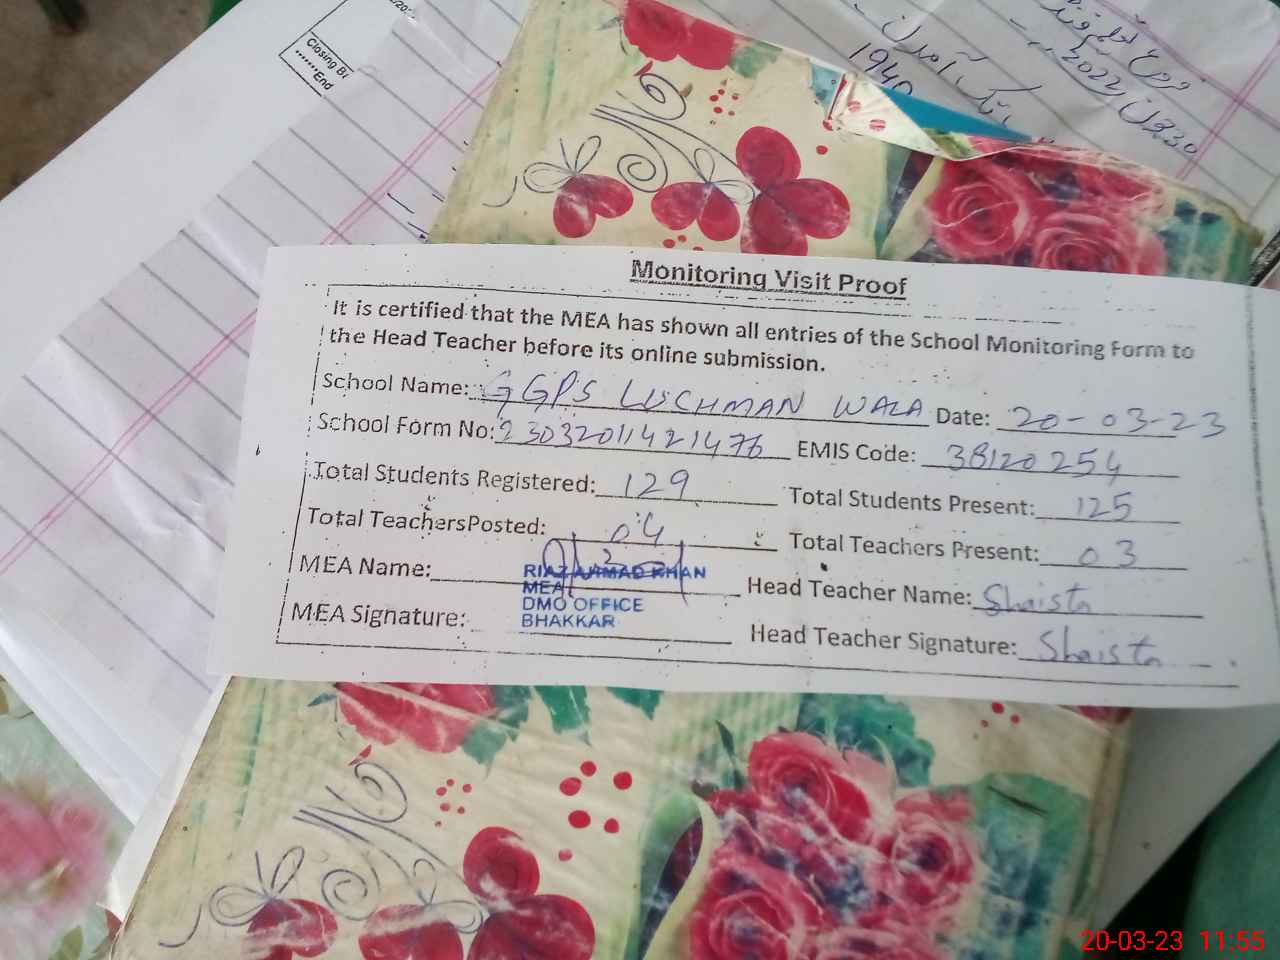 Closing B
End
1940
2022
Monitoring Visit Proof
It is certified that the MEA has shown all entries of the School Monitoring Form to
the Head Teacher before its online submission.
School Name: GGPS LUCHMAN WALA Date: 20-03-23
School Form No: 23032011421476 EMIS Code: 38120254
Total Students Registered: 129 Total Students Present: 125
Total TeachersPosted: 04 Total Teachers Present: 03
MEA Name: RIAZ AHMAD KHAN Head Teacher Name: Shaista
MEA
DMO OFFICE
BHAKKAR
MEA Signature: Head Teacher Signature: Shaista
20-03-23 11:55